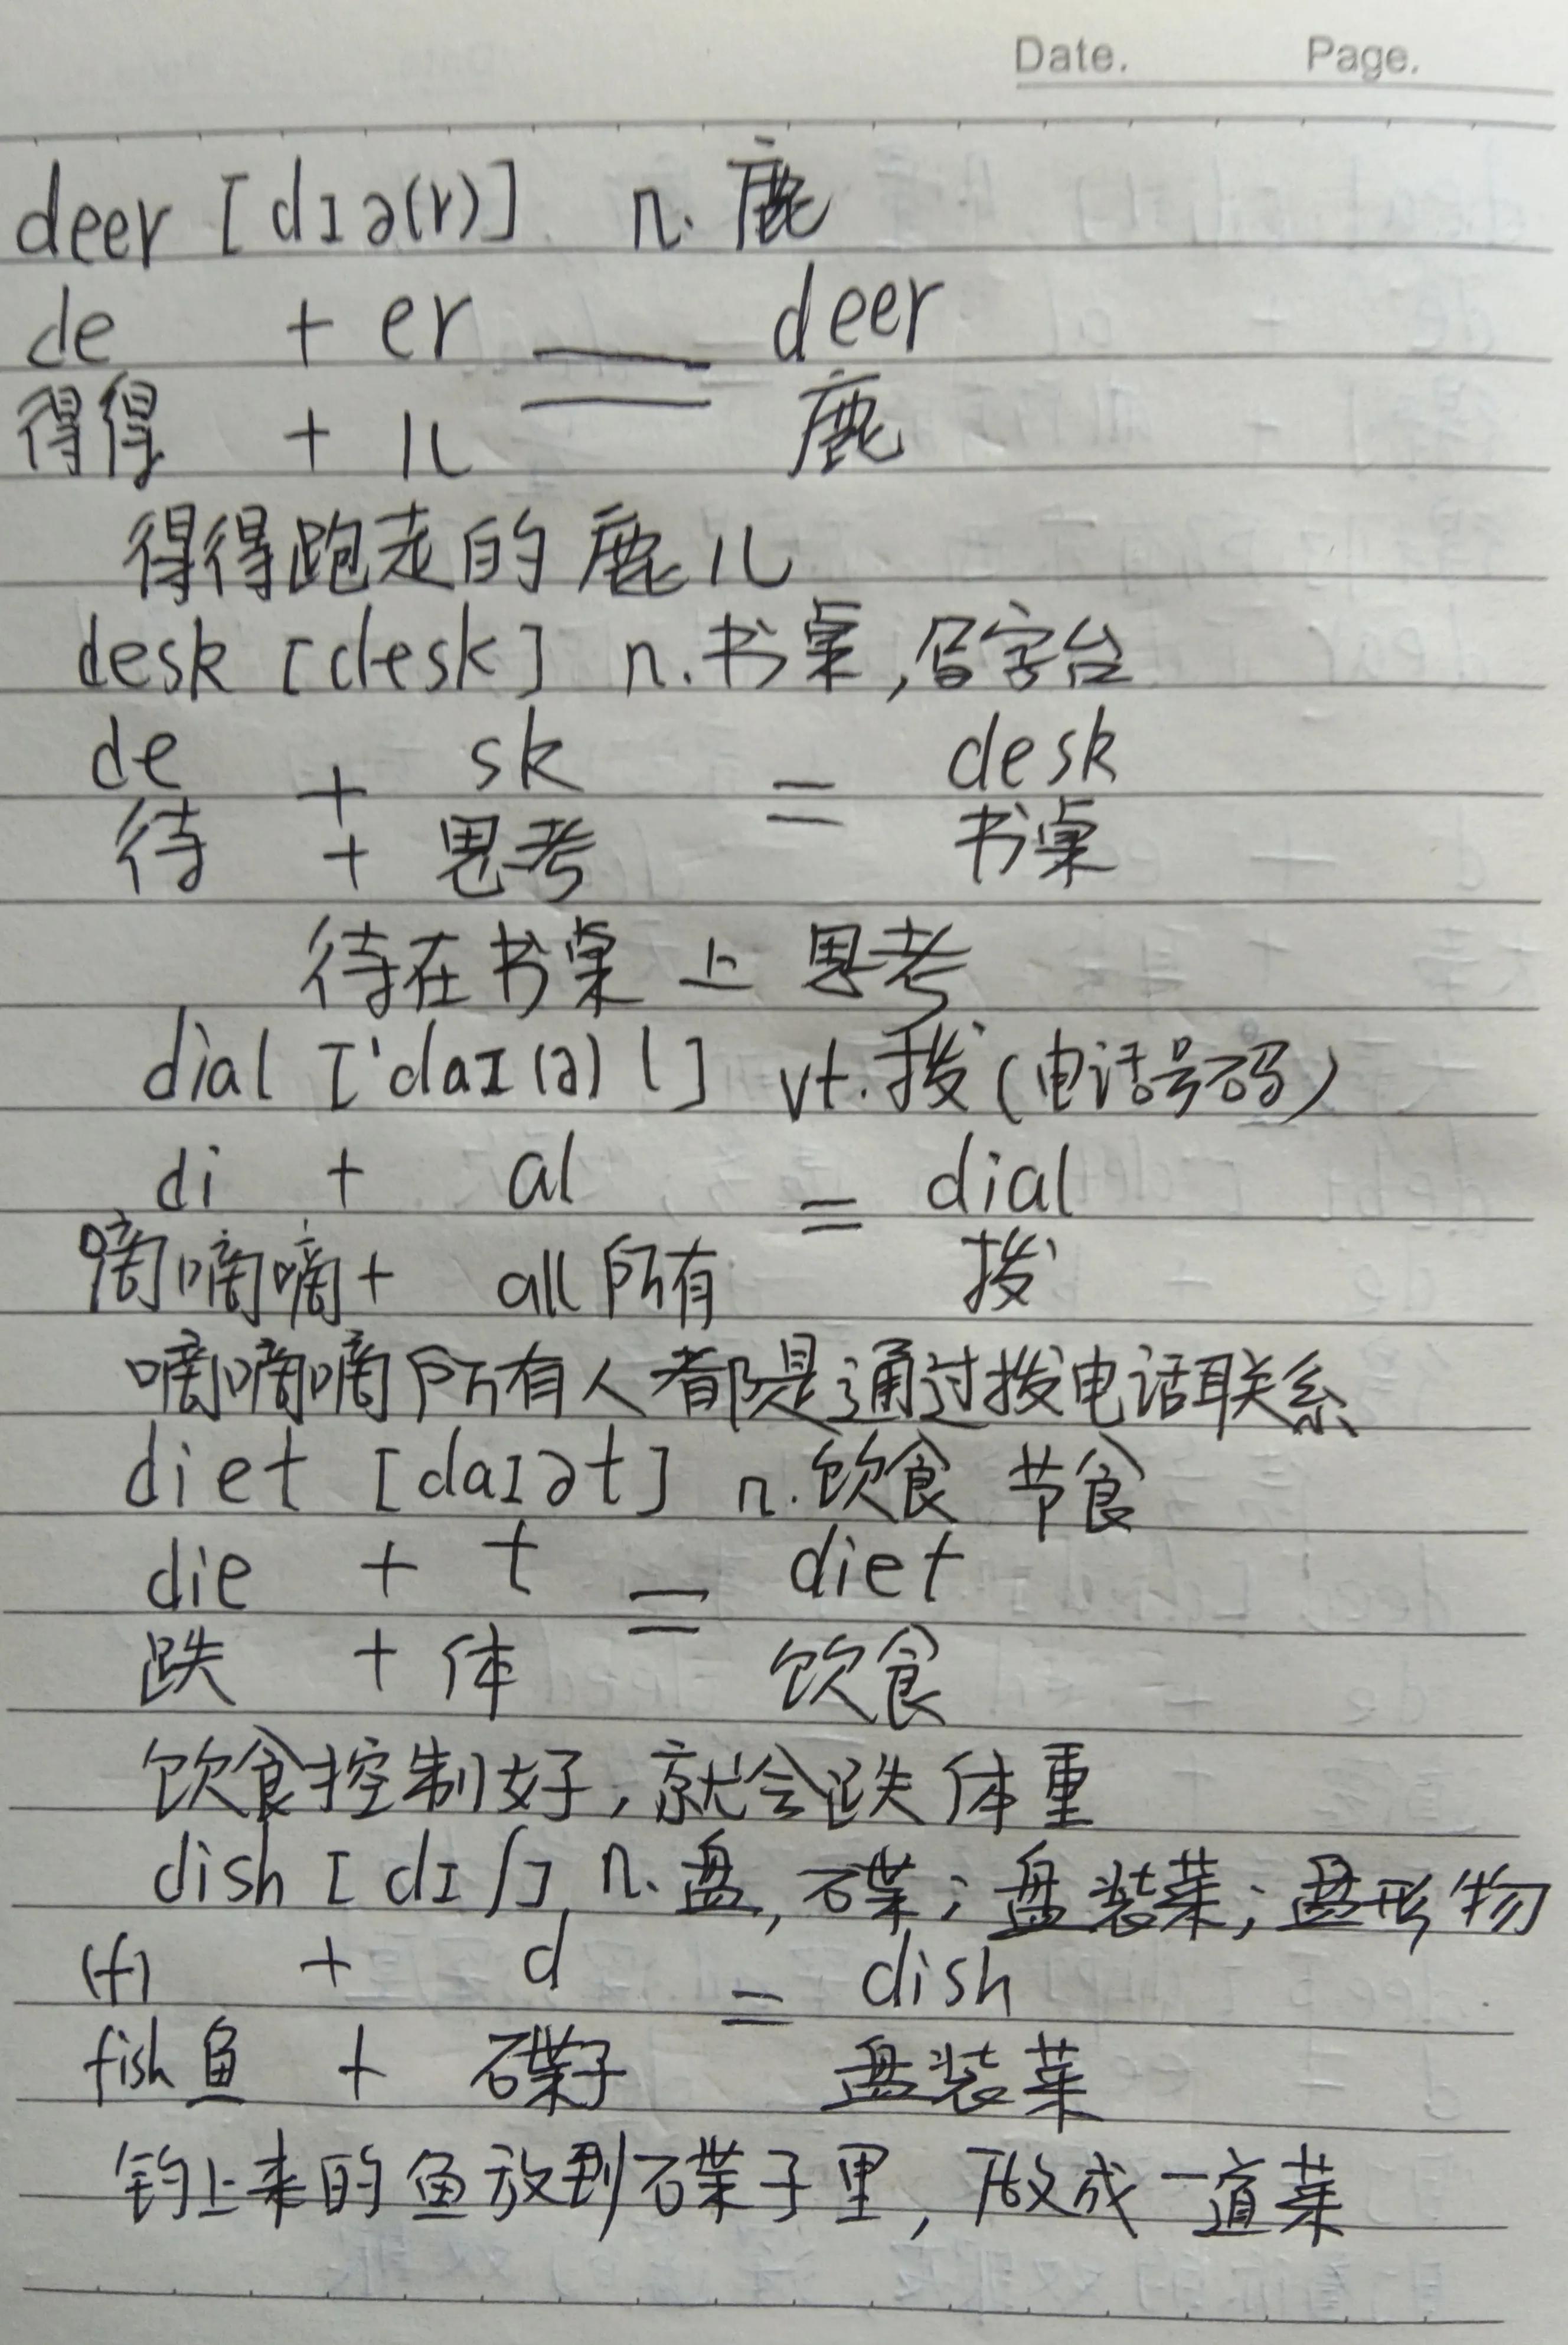 Date. Page.
deer [dɪə(r)] n. 鹿
de + er = deer
得得 + 儿 鹿
得得跑走的鹿儿
desk [desk] n. 书桌,写字台
de + sk = desk
待 + 思考 书桌
待在书桌上思考
dial ['daɪ(ə)l] vt. 拨(电话号码)
di + al = dial
嘀嘀嘀+ all所有 拨
嘀嘀嘀所有人都是通过拨电话联系
diet [daɪət] n. 饮食 节食
die + t = diet
跌 + 体 饮食
饮食控制好,就会跌体重
dish [dɪʃ] n. 盘,碟;盘装菜;盘形物
(f) + d = dish
fish 鱼 + 碟子 盘装菜
钓上来的鱼放到碟子里,做成一道菜